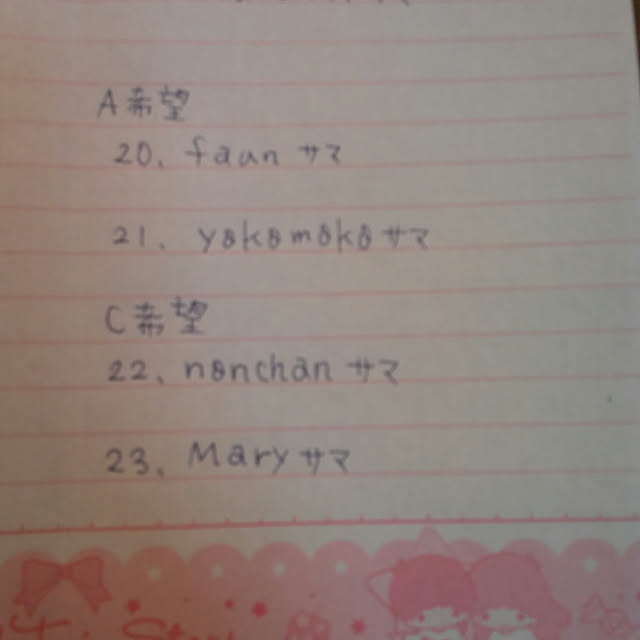 A希望
20、faanサマ
21、yokomokoサマ
C希望
22、nonchanサマ
23、Maryサマ